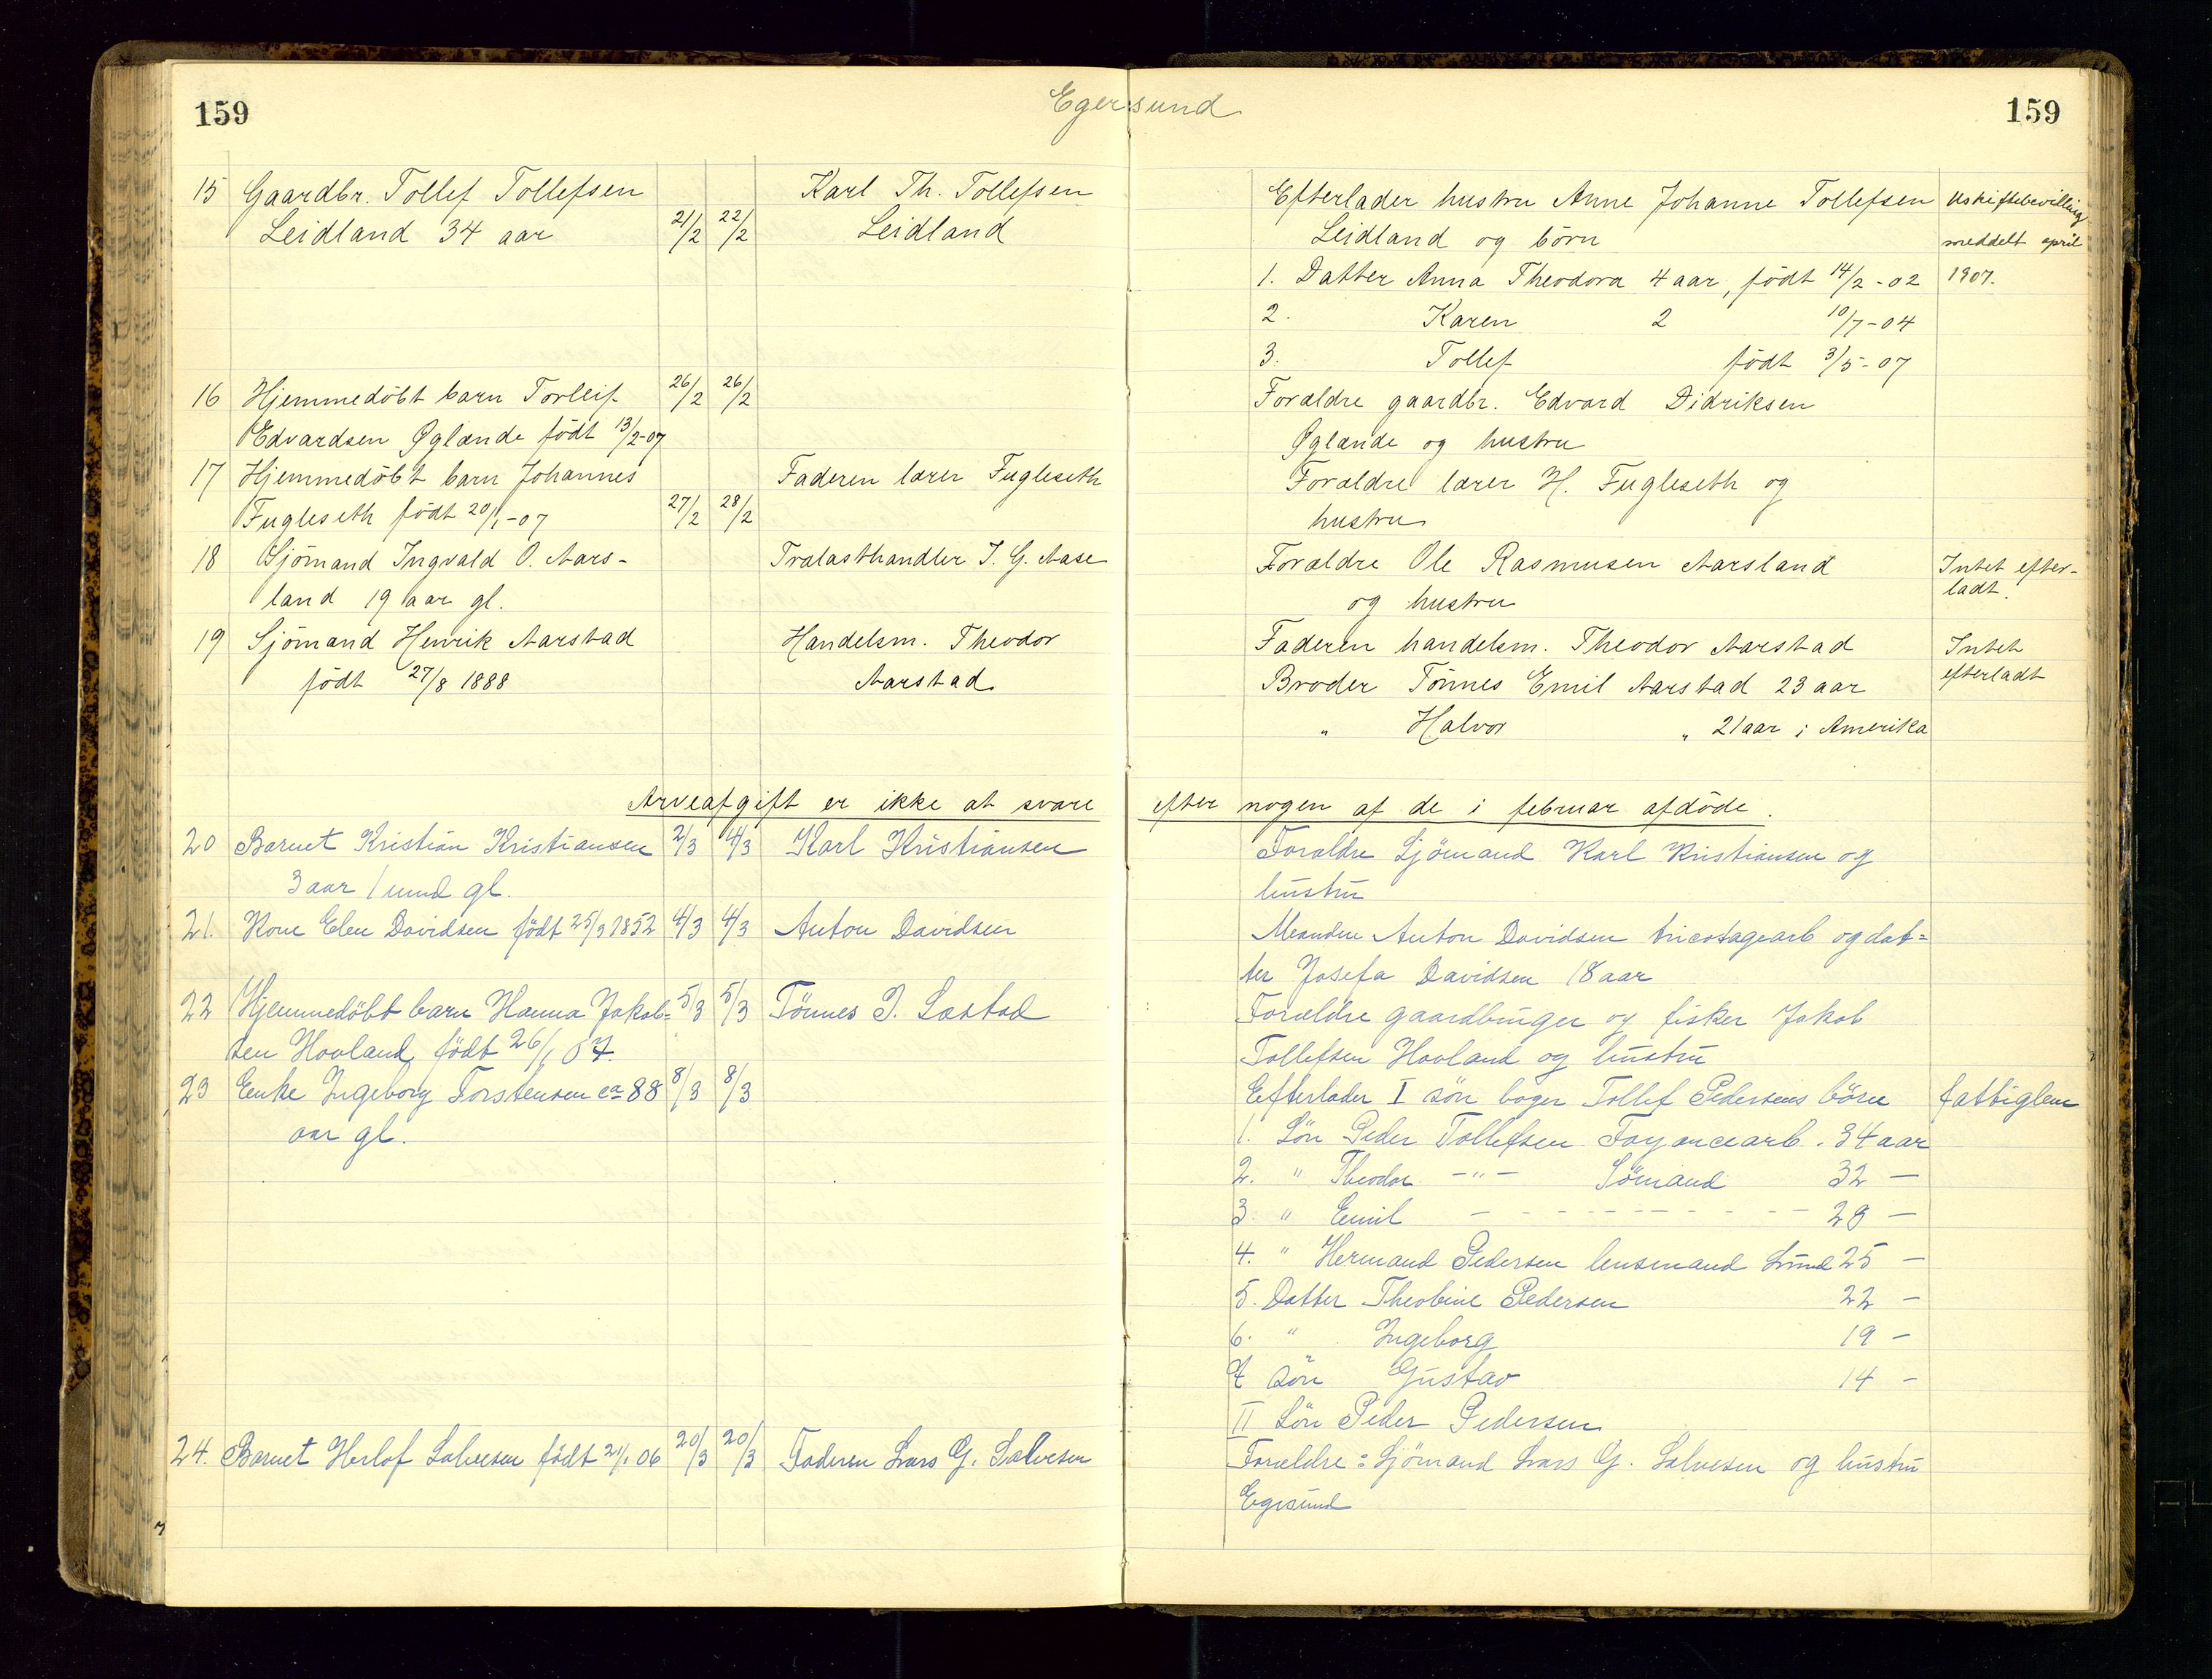 159
Egersund
159
15 Gaardbr. Tollef Tollefsen Karl Th. Tollefsen Efterlader hustru Anne Johanne Tollefsen Uskiftebevilling
Leidland 34 aar 21/2 22/2 Leidland Leidland og børn meddelt april
1. Datter Anna Theodora 4 aar, født 14/2-02 1907.
2. Karen 2 10/7-04
3. Tollef født 3/5-07
16 Hjemmedøbt barn Torleif 26/2 26/2 Forældre gaardbr. Edvard Didriksen
Edvardsen Øglænde født 13/2-07 Øglænde og hustru
17 Hjemmedøbt barn Johannes Faderen lærer Fugleseth Forældre lærer H. Fugleseth og
Fugleseth født 20/1-07 27/2 28/2 hustru
18 Sjömand Ingvald O. Aars- Trælasthandler I. G. Aase Forældre Ole Rasmusen Aarsland Intet efter-
land 19 aar gl. og hustru ladt.
19 Sjömand Henrik Aarstad Handelsm. Theodor Faderen handelsm. Theodor Aarstad Intet
født 27/8 1888 Aarstad Broder Tönnes Emil Aarstad 23 aar efterladt
" Halvor " 21 aar i Amerika
Arveafgift er ikke at svare efter nogen af de i februar afdöde.
20 Barnet Kristian Kristiansen 2/3 4/3 Karl Kristiansen Forældre Sjömand Karl Kristiansen og
3 aar 1 mnd gl. hustru
21. Kone Elen Davidsen født 25/9 1852 4/3 4/3 Anton Davidsen Manden Anton Davidsen tricotagearb og dat=
ter Josefa Davidsen 18 aar
22 Hjemmedöbt barn Hanna Jakob= 5/3 5/3 Tönnes I. Sæstad Forældre gaardbruger og fisker Jakob
sen Hovland født 26/1 07. Tollefsen Hovland og hustru
23 Enke Ingeborg Torstensen ca 88 8/3 8/3 Efterlader I sön bager Tollef Pedersens börn fattiglem
aar gl. 1. Sön Peder Tollefsen Fayancearb. 34 aar
2. " Theodor -"- Sömand 32 -
3. " Emil - - - - - - - - - - 29 -
4. " Hermand Pedersen lensmand Lund 25 -
5. Datter Theobine Pedersen 22 -
6. " Ingeborg 19 -
7 Sön Gustav 14 -
II Sön Peder Pedersen
24. Barnet Herlof Salvesen født 21/1 06 20/3 20/3 Faderen Lars G. Salvesen Forældre: Sjömand Lars G. Salvesen og hustru
Egersund